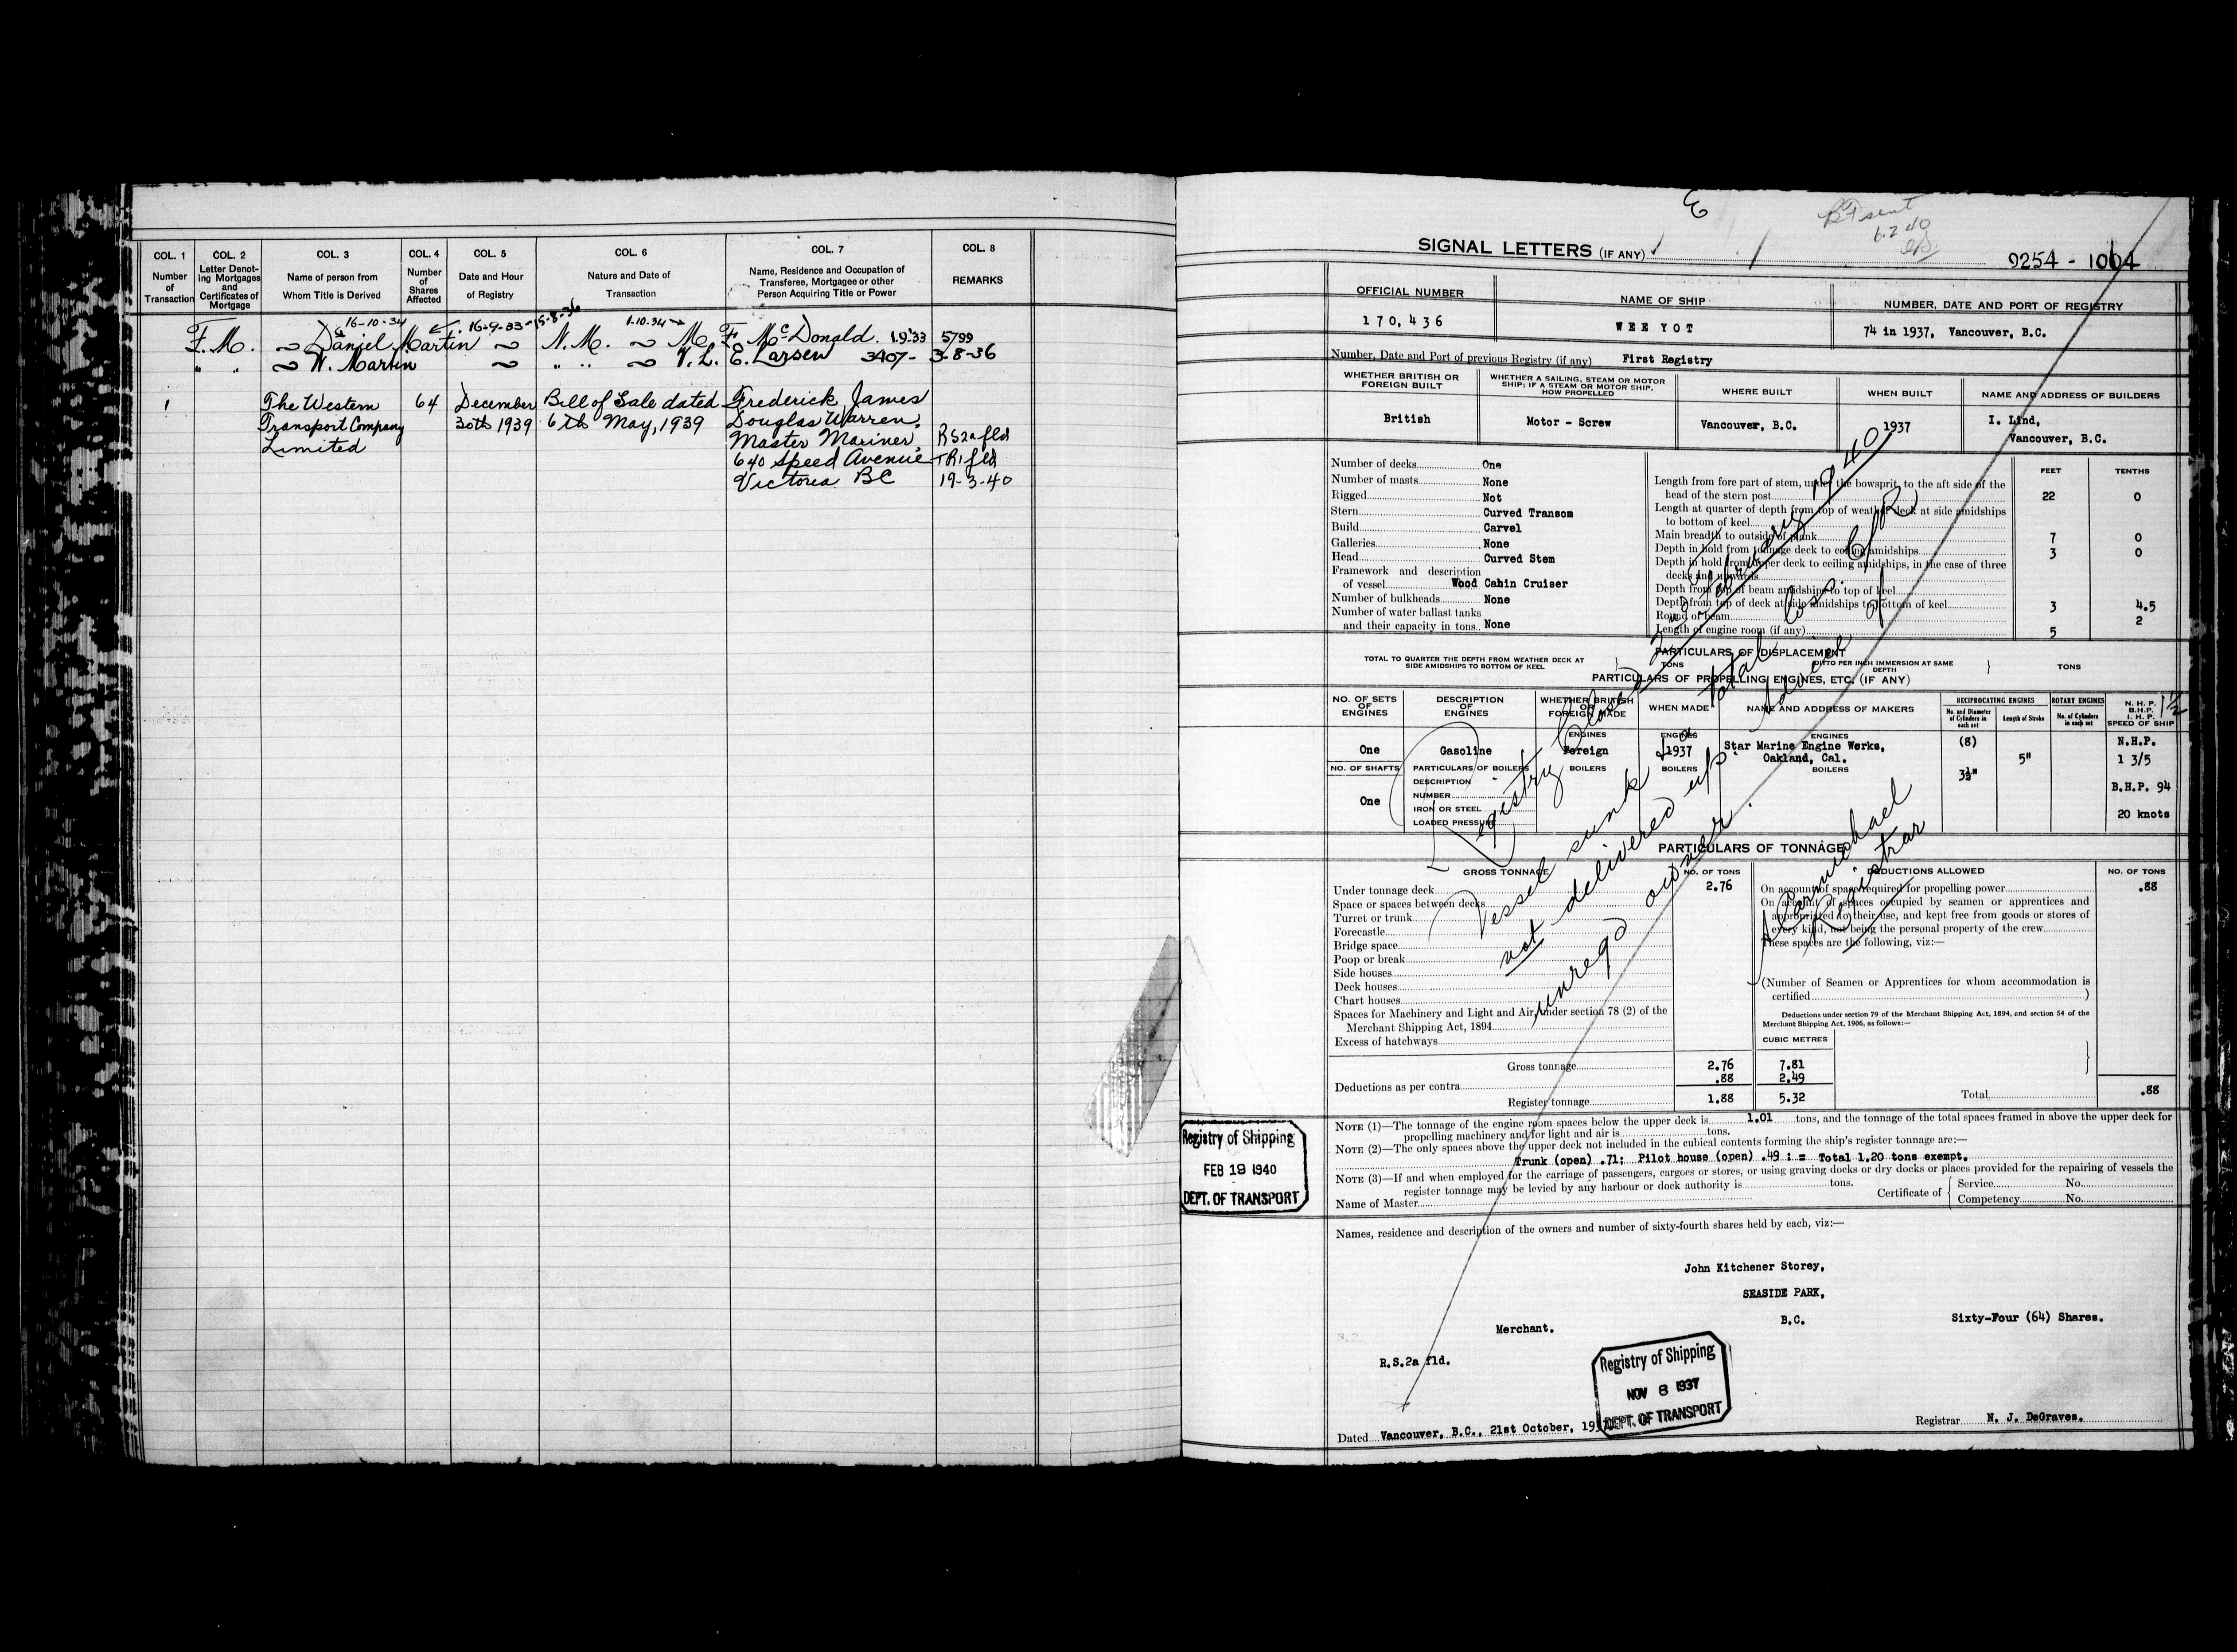 COL. 1 COL. 2 COL. 3 COL. 4 COL. 5 COL. 6 COL. 7 COL. 8
Number of Transaction
Letter Denoting Mortgages and Certificates of Mortgage
Name of person from Whom Title is Derived
Number of Shares Affected
Date and Hour of Registry
Nature and Date of Transaction
Name, Residence and Occupation of Transferee, Mortgagee or other Person Acquiring Title or Power
REMARKS
16-10-34 16-9-33 15-8-36 1-10-34
F. M. Daniel Martin N. M. M. F. McDonald. 1.9.33 5799
" " W. Martin " " V. L. E. Larsen 3407- 3-8-36
1 The Western 64 December Bill of Sale dated Frederick James
Transport Company 30th 1939 6th May, 1939 Douglas Warren,
Limited Master Mariner RS2a fld
640 Speed Avenue TR1 fld
Victoria BC 19-3-40
BT sent
6.2.40
SIGNAL LETTERS (IF ANY)
9254 - 1004
OFFICIAL NUMBER NAME OF SHIP NUMBER, DATE AND PORT OF REGISTRY
170,436 WEE YOT 74 in 1937, Vancouver, B.C.
Number, Date and Port of previous Registry (if any) First Registry
WHETHER BRITISH OR FOREIGN BUILT
WHETHER A SAILING, STEAM OR MOTOR SHIP; IF A STEAM OR MOTOR SHIP, HOW PROPELLED
WHERE BUILT WHEN BUILT NAME AND ADDRESS OF BUILDERS
British Motor - Screw Vancouver, B.C. 1937 I. Lind,
Vancouver, B.C.
Number of decks One
Number of masts None
Rigged Not
Stern Curved Transom
Build Carvel
Galleries None
Head Curved Stem
Framework and description
of vessel Wood Cabin Cruiser
Number of bulkheads None
Number of water ballast tanks
and their capacity in tons None
FEET TENTHS
Length from fore part of stem, under the bowsprit, to the aft side of the
head of the stern post 22 0
Length at quarter of depth from top of weather deck at side amidships
to bottom of keel
Main breadth to outside of plank 7 0
Depth in hold from tonnage deck to ceiling amidships 3 0
Depth in hold from upper deck to ceiling amidships, in the case of three
decks and upwards
Depth from top of beam amidships to top of keel
Depth from top of deck at side amidships to bottom of keel 3 4.5
Round of beam 2
Length of engine room (if any) 5
PARTICULARS OF DISPLACEMENT
TOTAL TO QUARTER THE DEPTH FROM WEATHER DECK AT SIDE AMIDSHIPS TO BOTTOM OF KEEL
TONS DITTO PER INCH IMMERSION AT SAME DEPTH TONS
PARTICULARS OF PROPELLING ENGINES, ETC. (IF ANY)
NO. OF SETS OF ENGINES
DESCRIPTION OF ENGINES
WHETHER BRITISH OR FOREIGN MADE
WHEN MADE
NAME AND ADDRESS OF MAKERS
RECIPROCATING ENGINES ROTARY ENGINES
No. and Diameter of Cylinders in each set Length of Stroke No. of Cylinders in each set
N. H. P. B.H.P. I. H. P. SPEED OF SHIP
1½
ENGINES ENGINES ENGINES
One Gasoline Foreign 1937 Star Marine Engine Works,
Oakland, Cal.
(8) 3½" 5"
N.H.P.
1 3/5
B.H.P. 94
20 knots
NO. OF SHAFTS PARTICULARS OF BOILERS BOILERS BOILERS BOILERS
One
DESCRIPTION
NUMBER
IRON OR STEEL
LOADED PRESSURE
Registry Closed 2nd February 1940
Vessel sunk & a total loss. C of R
not delivered up. Advice of
unregd owner.
A Carmichael
Registrar
PARTICULARS OF TONNAGE
GROSS TONNAGE NO. OF TONS DEDUCTIONS ALLOWED NO. OF TONS
Under tonnage deck 2.76
Space or spaces between decks
Turret or trunk
Forecastle
Bridge space
Poop or break
Side houses
Deck houses
Chart houses
Spaces for Machinery and Light and Air, under section 78 (2) of the
Merchant Shipping Act, 1894
Excess of hatchways
On account of space required for propelling power .88
On account of spaces occupied by seamen or apprentices and
appropriated to their use, and kept free from goods or stores of
every kind, not being the personal property of the crew
These spaces are the following, viz:—
(Number of Seamen or Apprentices for whom accommodation is
certified )
Deductions under section 79 of the Merchant Shipping Act, 1894, and section 54 of the
Merchant Shipping Act, 1906, as follows:—
CUBIC METRES
Gross tonnage 2.76 7.81
Deductions as per contra .88 2.49
Register tonnage 1.88 5.32
Total .88
NOTE (1)—The tonnage of the engine room spaces below the upper deck is 1.01 tons, and the tonnage of the total spaces framed in above the upper deck for
propelling machinery and for light and air is tons.
NOTE (2)—The only spaces above the upper deck not included in the cubical contents forming the ship's register tonnage are:—
Trunk (open) .71; Pilot house (open) .49 : = Total 1.20 tons exempt.
NOTE (3)—If and when employed for the carriage of passengers, cargoes or stores, or using graving docks or dry docks or places provided for the repairing of vessels the
register tonnage may be levied by any harbour or dock authority is tons.
Name of Master
Certificate of Service No.
Competency No.
Registry of Shipping
FEB 19 1940
DEPT. OF TRANSPORT
Names, residence and description of the owners and number of sixty-fourth shares held by each, viz:—
John Kitchener Storey,
SEASIDE PARK,
B.C. Sixty-Four (64) Shares.
Merchant.
R.S.2a fld.
Registry of Shipping
NOV 8 1937
DEPT. OF TRANSPORT
Dated Vancouver, B.C., 21st October, 1937
Registrar N. J. DeGraves.